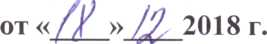 от «18» 12 2018 г.